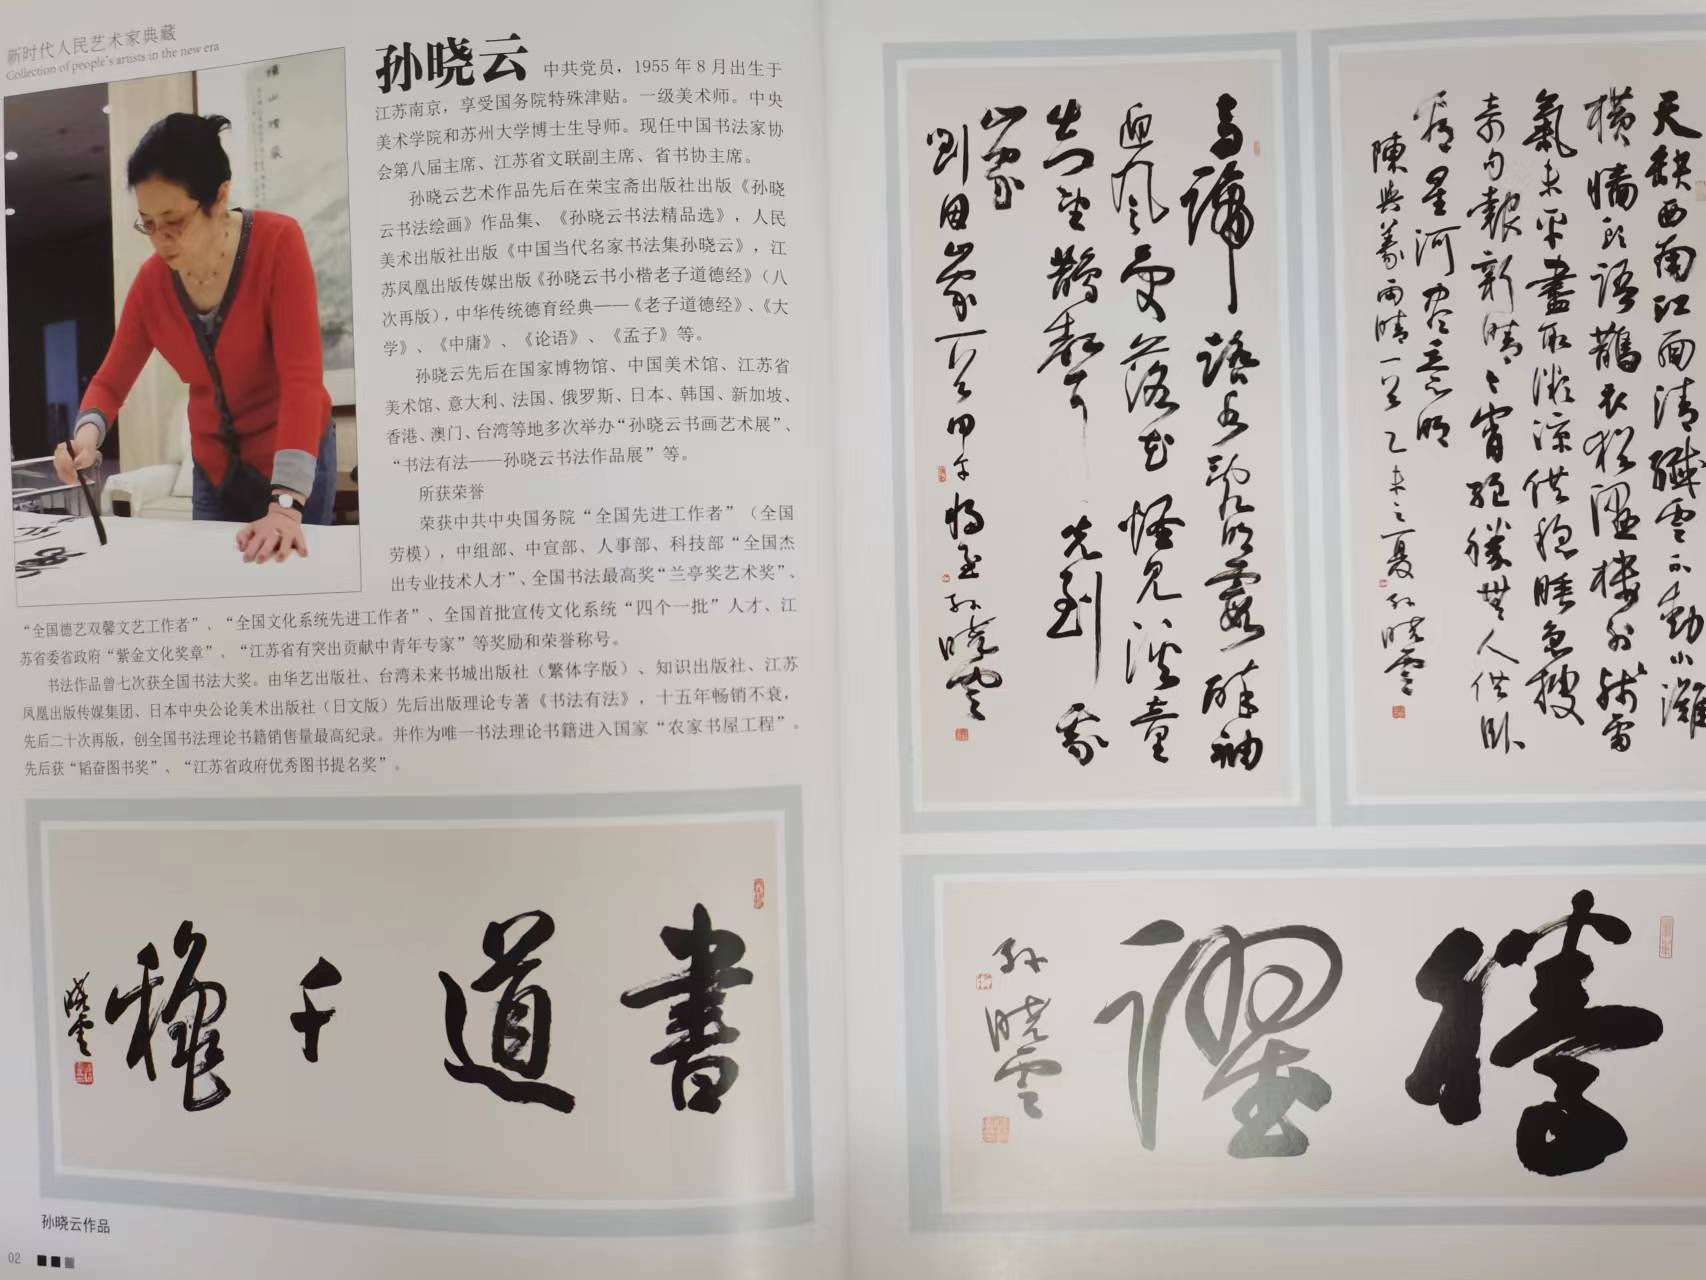 新时代人民艺术家典藏
Collection of people's artists in the new era
孙晓云 中共党员，1955 年 8 月出生于
江苏南京，享受国务院特殊津贴。一级美术师。中央
美术学院和苏州大学博士生导师。现任中国书法家协
会第八届主席、江苏省文联副主席、省书协主席。
孙晓云艺术作品先后在荣宝斋出版社出版《孙晓
云书法绘画》作品集、《孙晓云书法精品选》，人民
美术出版社出版《中国当代名家书法集孙晓云》，江
苏凤凰出版传媒出版《孙晓云书小楷老子道德经》（八
次再版），中华传统德育经典——《老子道德经》、《大
学》、《中庸》、《论语》、《孟子》等。
孙晓云先后在国家博物馆、中国美术馆、江苏省
美术馆、意大利、法国、俄罗斯、日本、韩国、新加坡、
香港、澳门、台湾等地多次举办“孙晓云书画艺术展”、
“书法有法——孙晓云书法作品展”等。
所获荣誉
荣获中共中央国务院“全国先进工作者”（全国
劳模），中组部、中宣部、人事部、科技部“全国杰
出专业技术人才”、全国书法最高奖“兰亭奖艺术奖”、
“全国德艺双馨文艺工作者”、“全国文化系统先进工作者”、全国首批宣传文化系统“四个一批”人才、江
苏省委省政府“紫金文化奖章”、“江苏省有突出贡献中青年专家”等奖励和荣誉称号。
书法作品曾七次获全国书法大奖。由华艺出版社、台湾未来书城出版社（繁体字版）、知识出版社、江苏
凤凰出版传媒集团、日本中央公论美术出版社（日文版）先后出版理论专著《书法有法》，十五年畅销不衰，
先后二十次再版，创全国书法理论书籍销售量最高纪录。并作为唯一书法理论书籍进入国家“农家书屋工程”。
先后获“韬奋图书奖”、“江苏省政府优秀图书提名奖”。
書道千穐
曉雲
孙晓云作品
02
馬蹄踏水亂明霞醉袖
迎風受落花怪見溪童
出門望鵲聲先到我
山家
劉因山家一首甲午 至孫曉雲
天缺西南江面清纖雲不動小灘
橫牆頭語鵲衣猶濕樓外殘雷
氣未平盡取微涼供穩睡急搜
奇句報新晴 宵絕勝無人供卧
看星河盡意明
陳與義雨晴一首乙未之夏孫曉雲
騰躍
孫曉雲